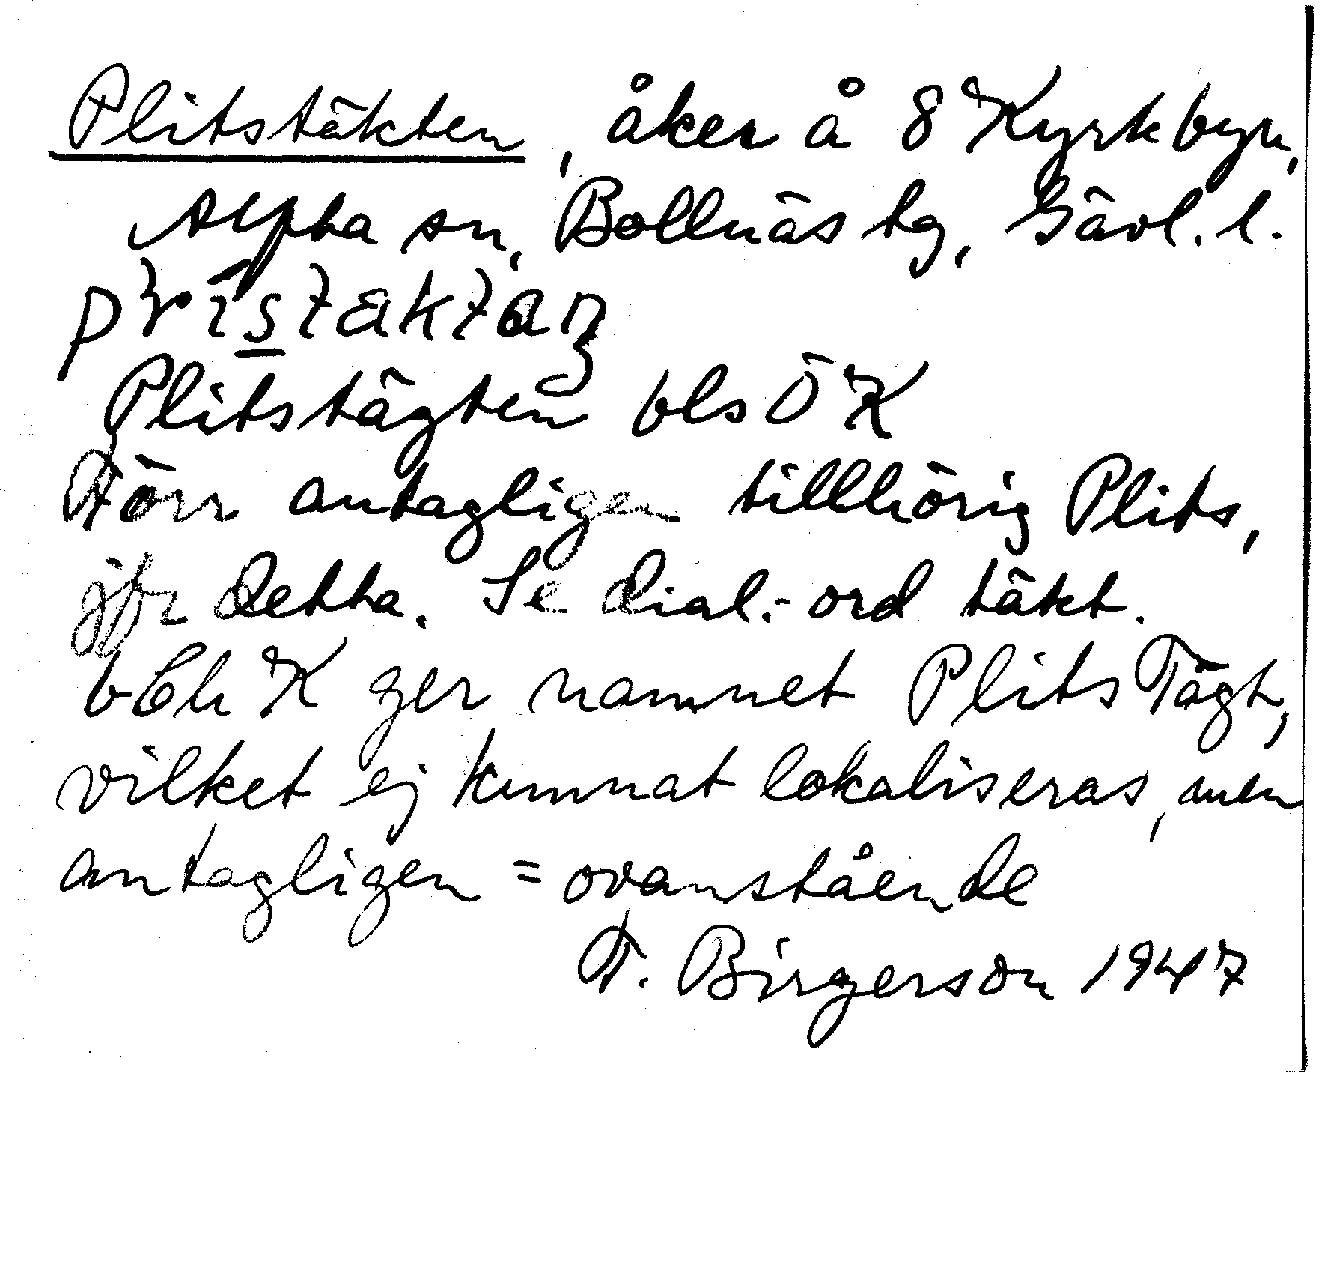 Plitstäkten, åker å 8 Kyrkbyn,
Alfta sn, Bollnäs tg, Gävl. l.
Plitstägten bls Ö K
Förr antagligen tillhörig Plits,
jfr detta. Se dial.-ord täkt.
bCh K ger namnet Plits Tägt,
vilket ej kunnat lokaliseras, men
antagligen = ovanstående
F. Birgerson 1947